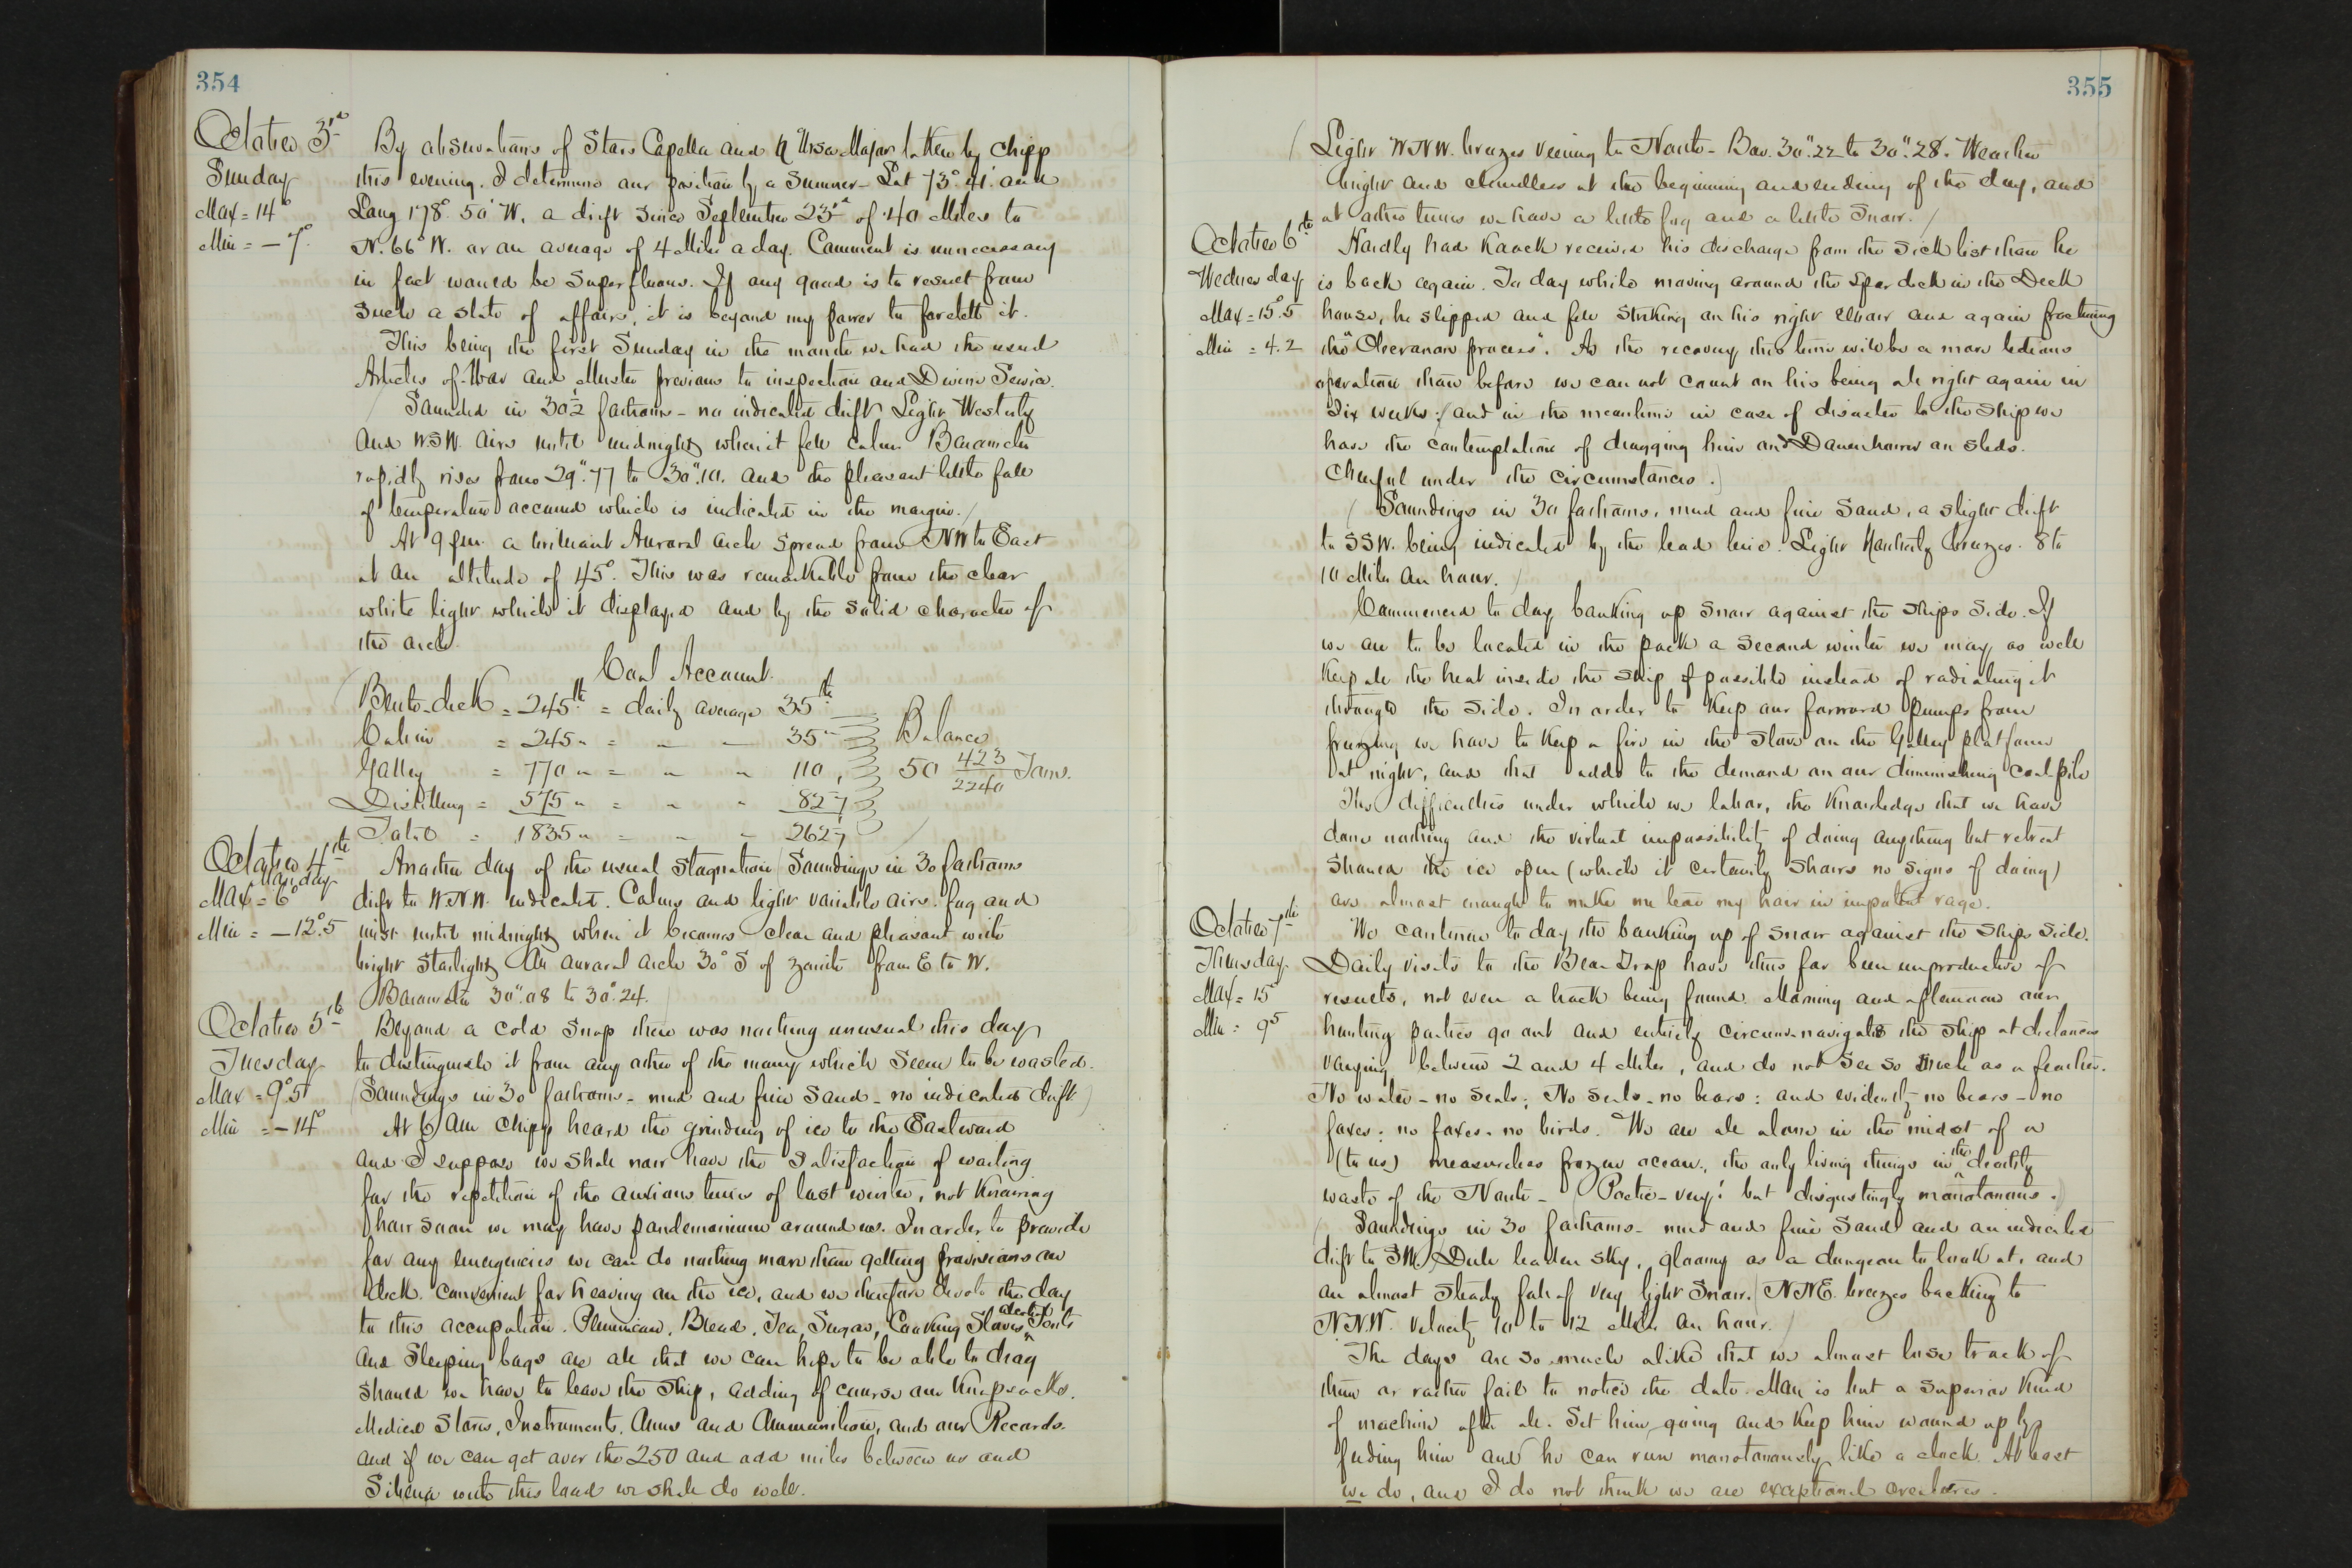 354
October 3rd
Sunday
Max = 14°
Min = – 7°.
By observations of Stars Capella and η Ursa Major taken by Chipp
this evening. I determine our position by a Sumner – Lat 73°. 41'. and
Long 178°. 50' W. a drift since September 23rd of 40 Miles to
N. 66° W. or an average of 4 Miles a day. Comment is unnecessary
in fact would be superfluous. If any good is to result from
such a state of affairs, it is beyond my power to foretell it.
This being the first Sunday in the month we had the usual
Articles of War and Muster previous to inspection and Divine Service.
Sounded in 30½ fathoms – no indicated drift Light Westerly
and WSW. Airs until midnight, when it fell calm. Barometer
rapidly rises from 29".77 to 30".10. and the pleasant little fall
of temperature occurred which is indicated in the margin.
At 9 p.m. a brilliant Auroral arch spread from NW to East
at an altitude of 45°. This was remarkable from the clear
white light which it displayed and by the solid character of
the arch.
Coal Account.
Berth-deck = 245 lb = daily average 35 lb
Cabin = 245 " = " – 35 " Balance
Galley = 770 " = " " 110, 50 423/2240 Tons.
Distilling = 575 " = " " 82 1/7
Total = 1835 " = " – 262 1/7
October 4th
Monday
Max = 6°
Min = – 12°.5
Another day of the usual stagnation / Soundings in 30 fathoms
drift to W.N.W. indicated. Calms and light variable airs. fog and
mist until midnight, when it becomes clear and pleasant with
bright starlight An auroral arch 30° S of zenith from E to W.
Barometer 30".08 to 30".24.
October 5th
Tuesday
Max = 9°.5
Min = – 14°
Beyond a cold snap there was nothing unusual this day
to distinguish it from any other of the many which seem to be wasted.
(Soundings in 30 fathoms – mud and fine sand – no indicated drift)
At 6 AM Chipp heard the grinding of ice to the Eastward
and I suppose we shall now have the satisfaction of waiting
for the repetition of the anxious times of last winter, not knowing
how soon we may have pandemonium around us. In order to provide
for any emergencies we can do nothing more than getting provisions on
deck. convenient for heaving on the ice, and we therefore devote the day
to this occupation. Pemmican, Bread, Tea, Sugar, Cooking Stoves, alcohol, Tents
and Sleeping bags are all that we can hope to be able to drag
should we have to leave the ship, adding of course our Knapsacks.
Medical Stores, Instruments, Arms and Ammunition, and our Records.
and if we can get over the 250 and odd miles between us and
Siberia with this load we shall do well.
355
Light WNW. breezes veering to North – Bar. 30".22 to 30".28. Weather
bright and cloudless at the beginning and ending of the day, and
at other times we have a little fog and a little snow. /
October 6th
Wednesday
Max = 15°.5
Min = 4.2
Hardly had Kaack received his discharge from the sick list than he
is back again. To day while moving around the spar deck in the Deck
house, he slipped and fell striking on his right elbow and again fracturing
the "Olecranon process". As the recovery this time will be a more tedious
operation than before we can not count on his being all right again in
six weeks: / and in the meantime in case of disaster to the Ship we
have the contemplation of dragging him and Danenhower on sleds.
Cheerful under the circumstances.)
(Soundings in 30 fathoms, mud and fine sand, a slight drift
to SSW. being indicated by the lead line. Light Northerly breezes. 8 to
10 Miles an hour.
Commenced to day banking up snow against the ships side. If
we are to be located in the pack a second winter we may as well
keep all the heat inside the ship if possible instead of radiating it
through the side. In order to keep our forward pumps from
freezing we have to keep a fire in the stove on the Galley platform
at night, and that adds to the demand on our diminishing coal pile
The difficulties under which we labor, the Knowledge that we have
done nothing and the virtual impossibility of doing anything but retreat
should the ice open (which it certainly shows no signs of doing)
are almost enough to make me tear my hair in impotent rage.
October 7th
Thursday.
Max = 15°
Min = 9.5
We continue to day the banking up of snow against the ships side.
Daily visits to the Bear Trap have thus far been unproductive of
results, not even a track being found. Morning and afternoon our
hunting parties go out and entirely circumnavigate the ship at distances
varying between 2 and 4 Miles, and do not see so much as a feather.
No water – no seals; No seals – no bears: and evidently no bears – no
foxes; no foxes – no birds. We are all alone in the midst of a
(to us) measureless frozen ocean, the only living things in the deathly
waste of the North – Poetic – very! but disgustingly monotonous.
Soundings in 30 fathoms – mud and fine sand and an indicated
drift to SW. / Dull leaden sky, gloomy as a dungeon to look at, and
an almost steady fall of very light snow. / NNE. breezes backing to
NNW. Velocity 10 to 12 Miles an hour. /
The days are so much alike that we almost lose track of
them or rather fail to notice the date. Man is but a superior Kind
of machine after all. Set him going and keep him wound up by
feeding him and he can run monotonously like a clock. At least
we do, and I do not think we are exceptional creatures.